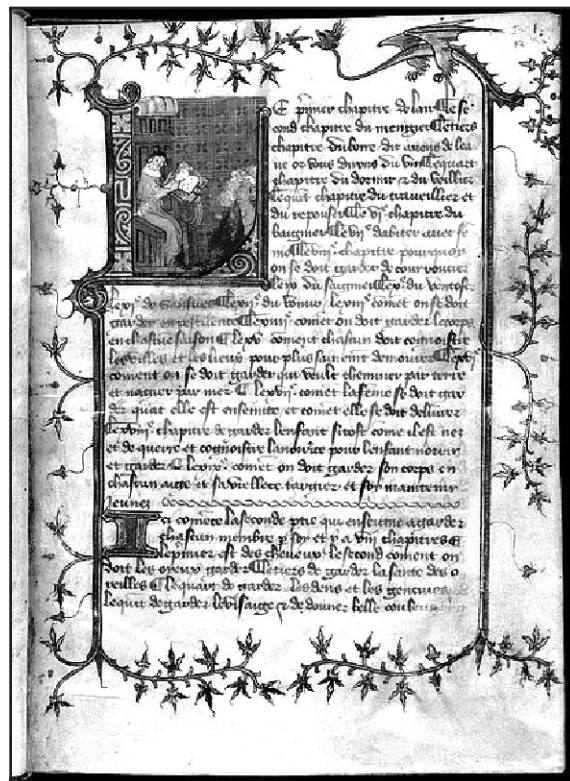 E premier chapitre de lair Le se
cond chapitre du mengier Le tiers
chapitre du boire dit avons de lea
ue or vous dirons du vin Le quart
chapitre du dormir et du veillier
Le quint chapitre du traveillier et
du reposer Le vi chapitre du
baignier Le vii dabiter avec fe
me Le viii chapitre pourquoy
on se doit garder de courroucier
Le ix du saignier Le x du ventoser
Le xi de sansues Le xii du vomir Le xiii comēt on se doit
garder Le xiiii comēt on doit garder le corps
en chascune saison Le xv coment chascun doit cognoistre
les villes et les lieux pour plus sainemēt demourer Le xvi
coment on se doit garder qui veult cheminer par terre
et nagier par mer Le xvii comēt la feme se doit gar
der quāt elle est ensainte et comēt elle se doit delivrer
Le xviii chapitre de garder lenfant si tost come il est nez
et de querre et cognoistre la nourice pour lenfant norrir
et garder Le xix comēt on doit garder son corps en
chascun aage et sa viellece targier et soy maintenir
jeunez
Ici comēce la seconde ptie qui enseigne a garder
chascun membre p soy et y a viii chapitres
Le pmier est des cheveux le second coment on
doit les yeux garder Le tiers de garder la sante des o
reilles Le quart de garder les dens et les gencives
Le quīt de garder le visaige et de donner belle couleur